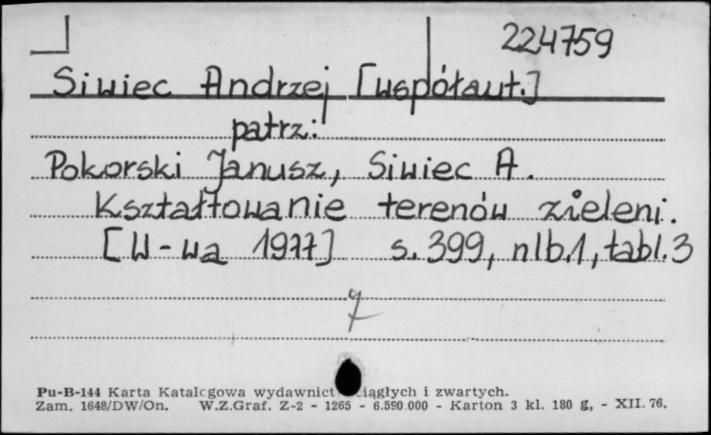 224759
Siwiec Andrzej [współaut.]
patrz:
Pokorski Janusz, Siwiec A.
Kształtowanie terenów zieleni.
[W-wa 1977] s. 399, nlb.1, tabl. 3
Pu-B-144 Karta Katalogowa wydawnict ciągłych i zwartych.
Zam. 1648/DW/On. W.Z.Graf. Z-2 - 1265 - 6.590.000 - Karton 3 kl. 180 g, - XII. 76.